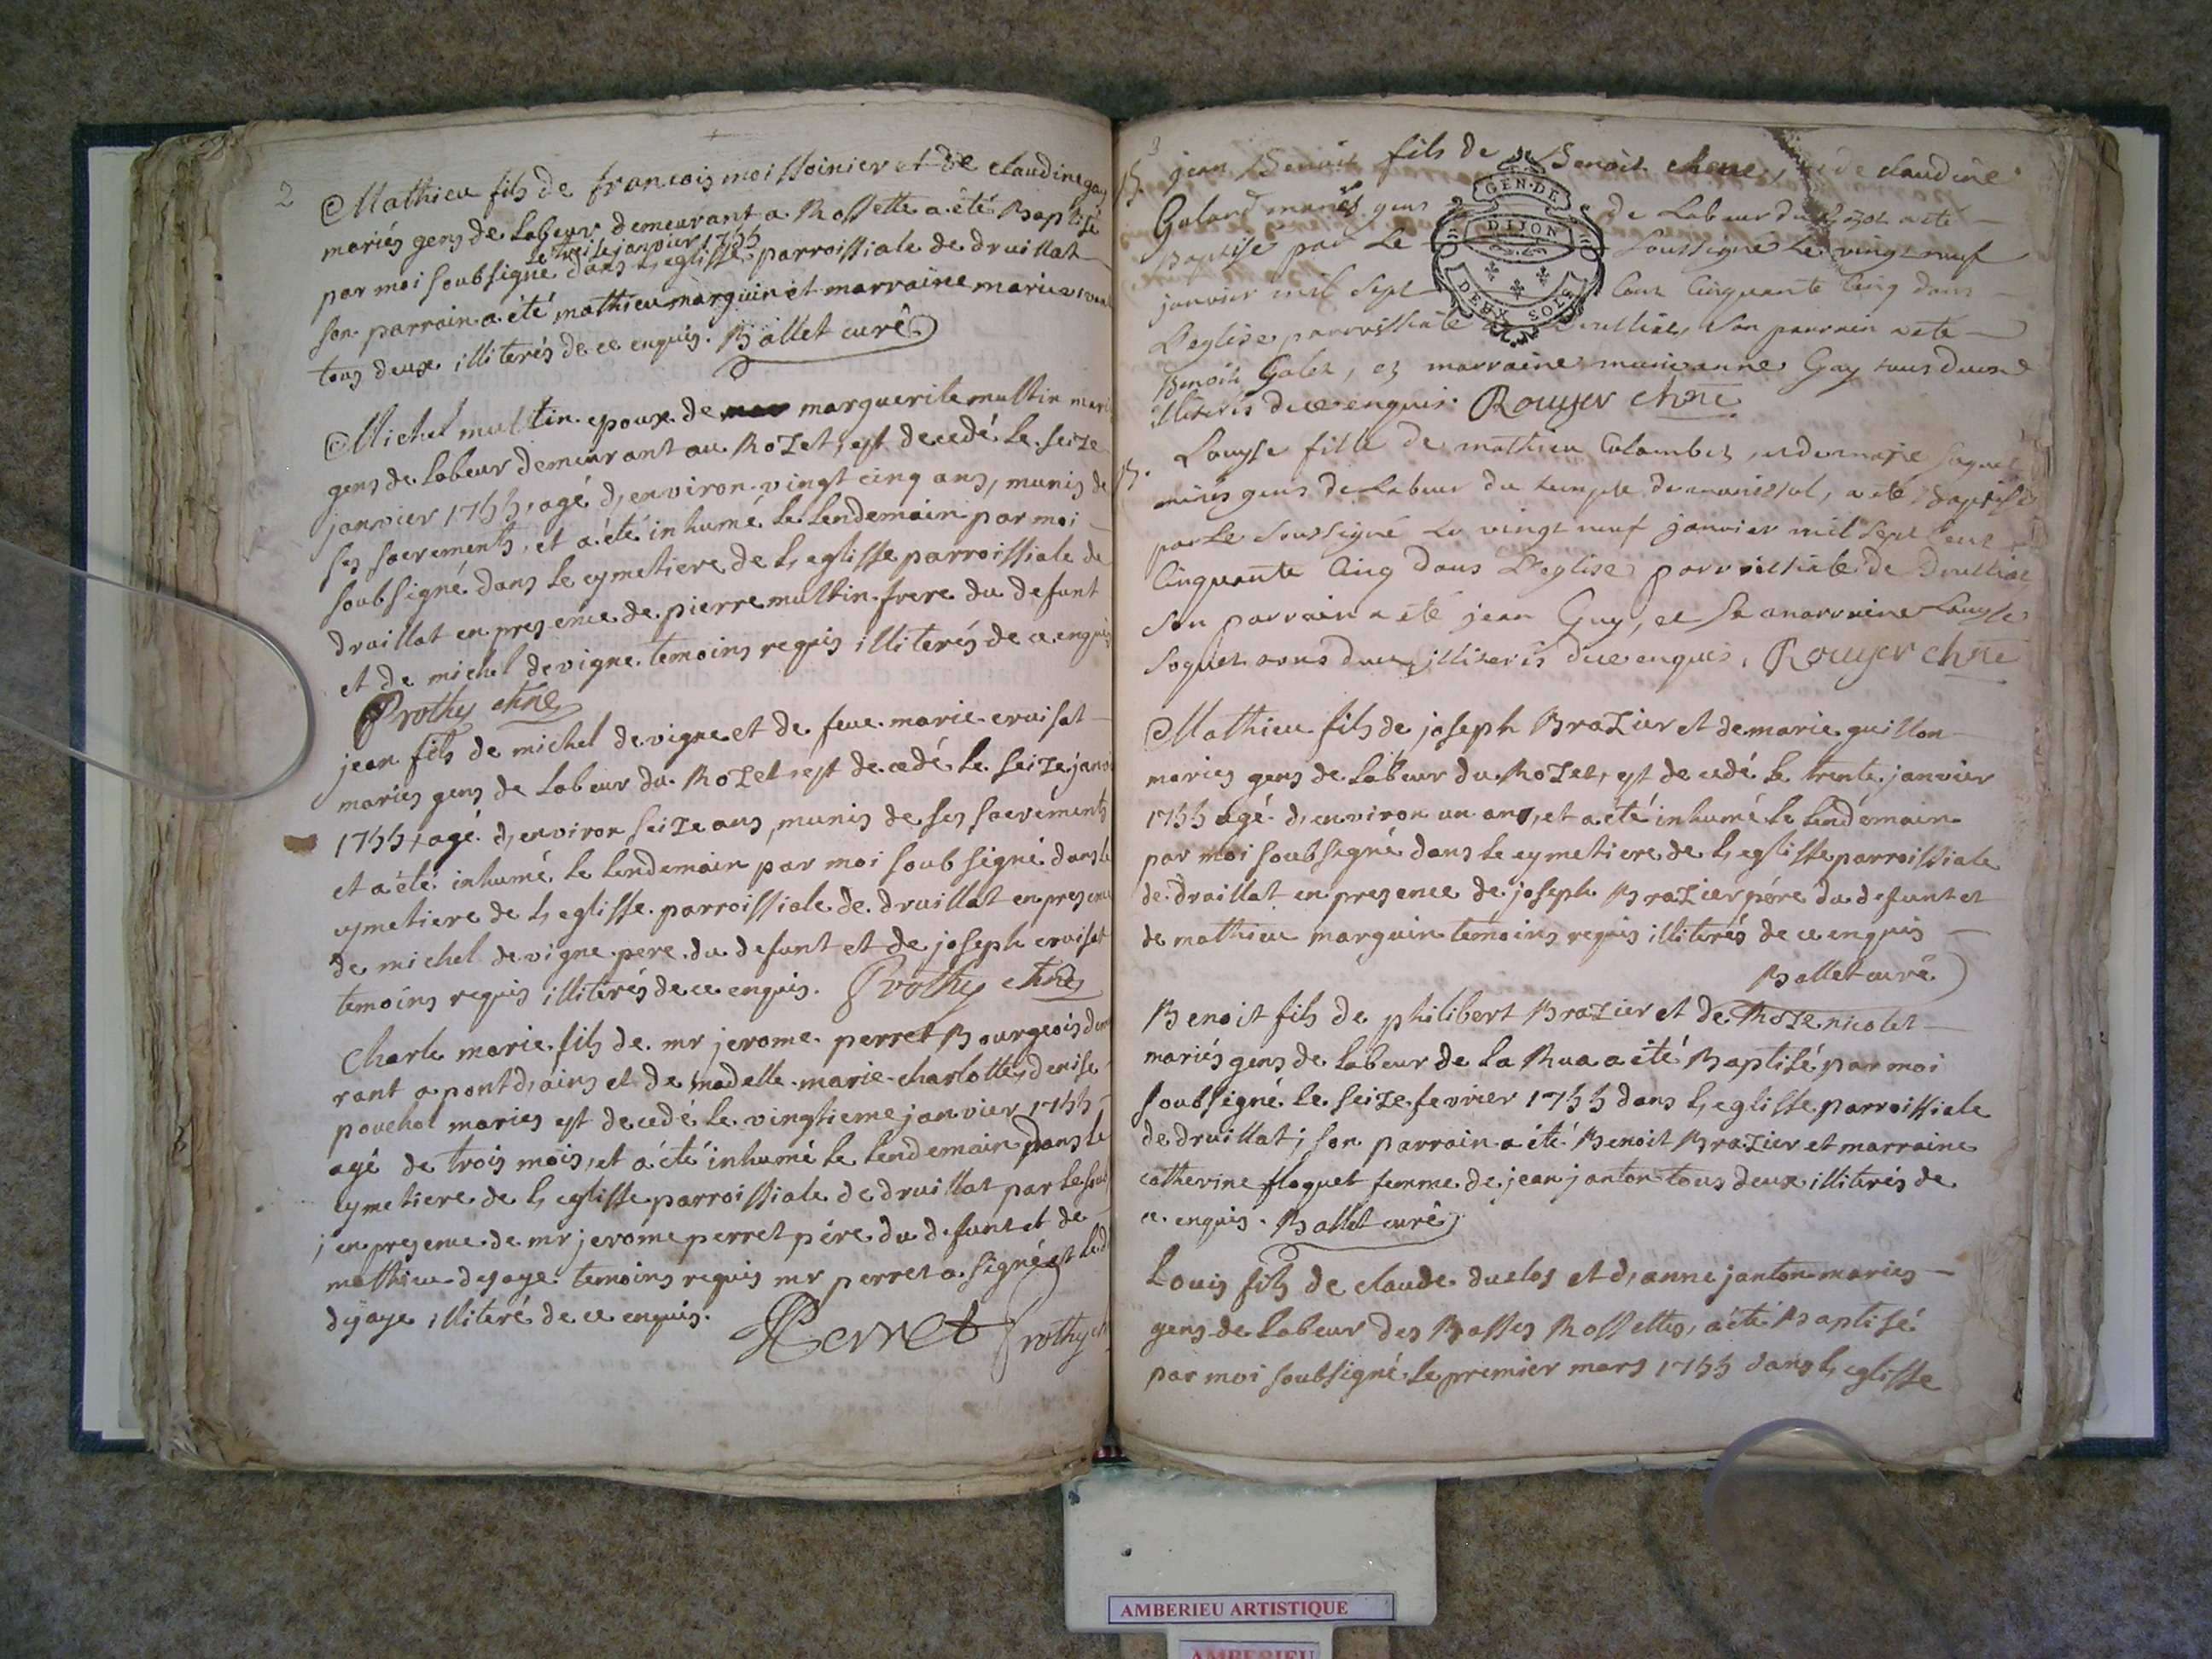 2
Mathieu fils de francois moissoinier et de claudine gay
mariés gens de labeur demeurant a Rossette a été Baptisé
le treisle janvier 1755
par moi soubsigné dans l, eglisse parroissiale de druillat
son parrain a été mathieu marguin et marraine marie
tous deux illiterés de ce enquis. Ballet curé
Michel multin epoux de marguerite multin mari
gens de labeur demeurant au Rozet, est decedé le seize
janvier 1755, agé d, environ vingt cinq ans, munis de
ses sacrements, et a été inhumé le lendemain par moi
soubsigné dans le cymetiere de l, eglisse parroissiale de
druillat en presence de pierre multin frere du defunt
et de michel devigne temoins requis illiterés de ce enquis
Prothy chne
jean fils de michel devigne et de feue marie cruisat
maries gens de labeur du Rozet est decedé le seize janvi
1755, agé d, environ seize ans, munis de ses sacrements
et a été inhumé le lendemain par moi soubsigné dans le
cymetiere de l, eglisse parroissiale de druillat en presence
de michel devigne pere du defunt et de joseph cruisat
temoins requis illiterés de ce enquis. Prothy chne
Charle marie fils de mr jerome perret Bourgeois demeu
rant a pont d, ains et de madelle marie charlotte denise
pouchol maries est decedé le vingtieme janvier 1755
agé de trois mois, et a été inhumé le lendemain dans le
cymetiere de l, eglisse parroissiale de druillat par le soub
; en presence de mr jerome perret pére du defunt et de
mathieu dejaye temoins requis mr perret a signé et led
dejaye illiteré de ce enquis.
Perret Prothy ch
3
B. jean Benoit fils de Benoit chene, et de claudine
Galand mariés gens de Labeur du Rozet a été
baptisé par Le soussigné Le vingt neuf
janvier mil sept Cent Cinquante Cinq dans
L'eglise parroissiale de Druillat, son parrain a été
Benoit Galet, et marraine marie anne Gay tous deux
illiterés de ce enquis. Rouyer chne
GEN. DE
DIJON
DEUX SOLS
B. Louyse fille de mathieu Colombet, et de marie soquet
mariés gens de Labeur du temple de , a été Baptisée
par Le soussigné Le vingt neuf janvier mil sept Cent
Cinquante Cinq dans L'eglise parroissiale de Druillat
son parrain a été jean Guy, et sa marraine Louyse
soquet tous deux illiterés de ce enquis. Rouyer chne
Mathieu fils de joseph Brazier et de marie guillon
maries gens de labeur du Rozet, est decedé le trente janvier
1755 agé d, environ un ans, et a été inhumé le lendémain
par moi soubsigné dans le cymetiere de l, eglisse parroissiale
de druillat en presence de joseph Brazier pére du defunt et
de mathieu marguin temoins requis illiterés de ce enquis
Ballet curé
Benoit fils de philibert Brazier et de Roze nicolet
mariés gens de labeur de la Rua a été Baptisé par moi
soubsigné le seize fevrier 1755 dans l, eglisse parroissiale
de druillat; son parrain a été Benoit Brazier et marraine
catherine floquet femme de jean janton tous deux illiterés de
ce enquis. Ballet curé
Louis fils de claude duclos et d, anne janton maries
gens de labeur des Basses Rossettes, a été Baptisé
par moi soubsigné le premier mars 1755 dans l, eglisse
AMBERIEU ARTISTIQUE
AMBERIEU